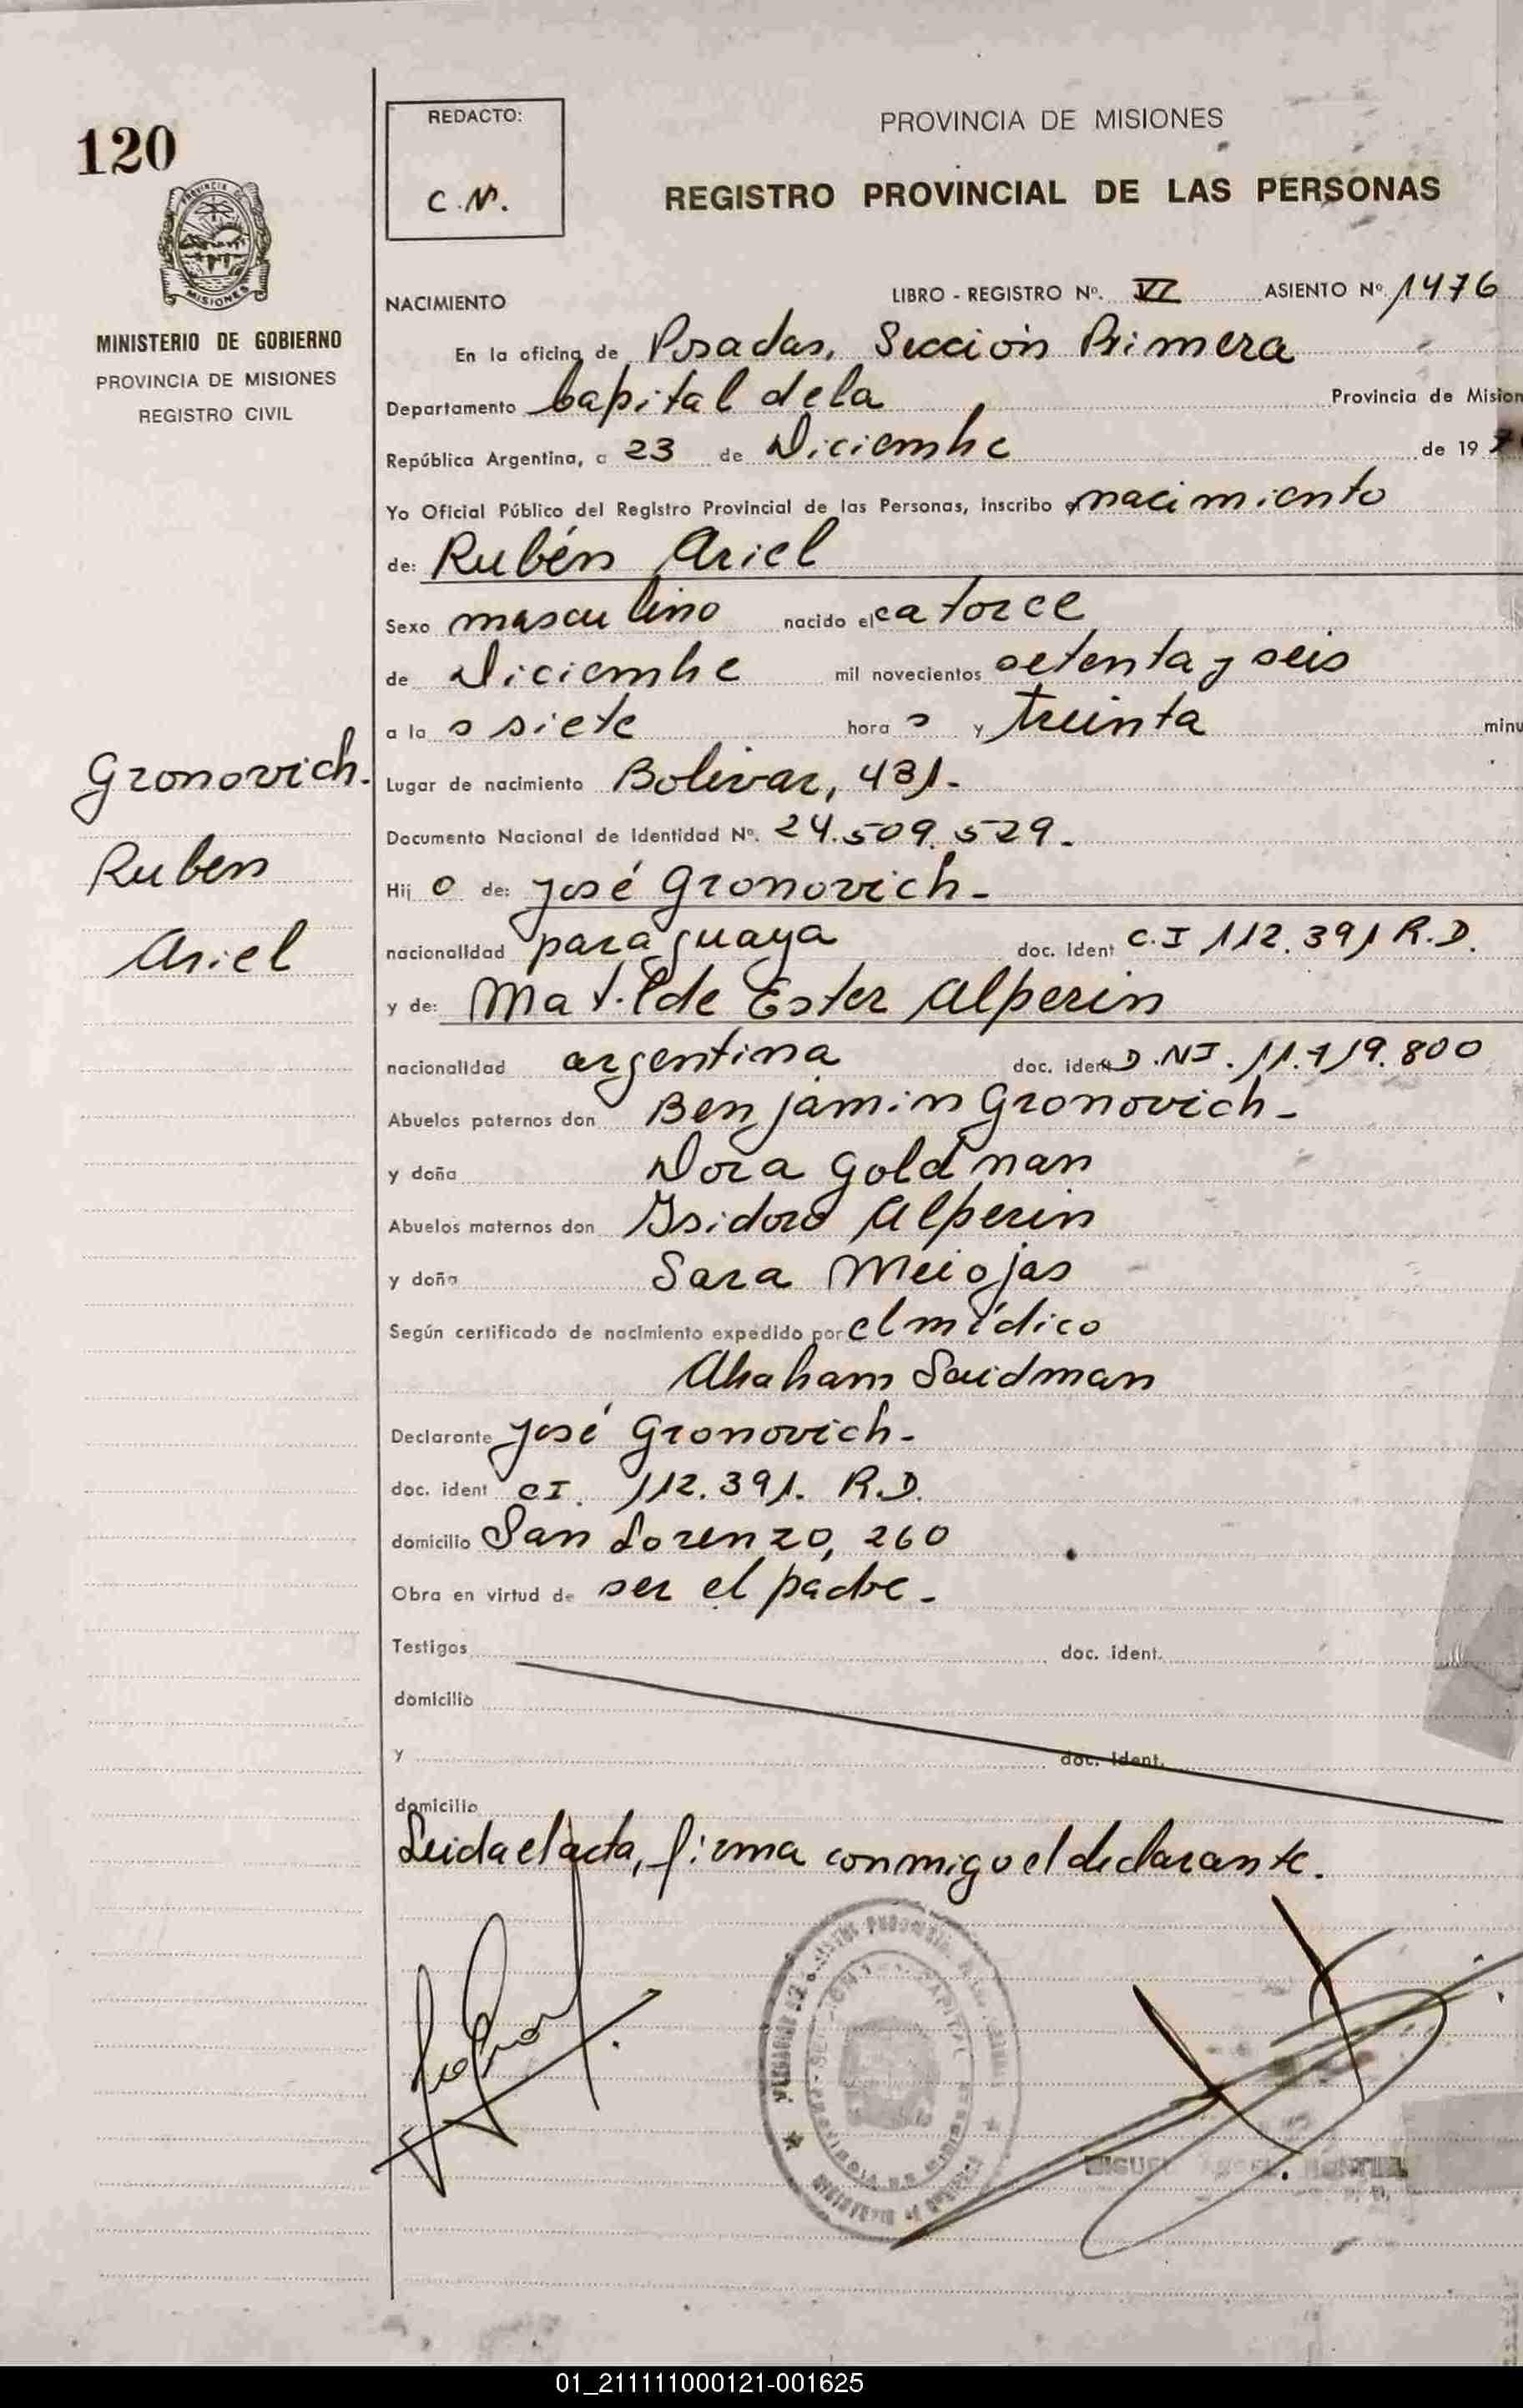 120
REDACTO:
C.N.
PROVINCIA DE MISIONES
REGISTRO PROVINCIAL DE LAS PERSONAS
MISIONES
MINISTERIO DE GOBIERNO
PROVINCIA DE MISIONES
REGISTRO CIVIL
NACIMIENTO
LIBRO - REGISTRO Nº. VI ASIENTO Nº 1476
En la oficina de Posadas, Sección Primera
Departamento Capital de la Provincia de Mision
República Argentina, a 23 de Diciembre de 197
Yo Oficial Público del Registro Provincial de las Personas, inscribo el nacimiento
de: Rubén Ariel
Sexo masculino nacido el catorce
de Diciembre mil novecientos setenta y seis
a las siete horas y treinta minu
Lugar de nacimiento Bolívar, 431.-
Documento Nacional de Identidad Nº. 24.509.529.-
Hijo de: José Gronovich.-
nacionalidad paraguaya doc. ident C.I 112.391 R.D.
y de: Matilde Ester Alperin
nacionalidad argentina doc. ident D.NI. 11.719.800
Abuelos paternos don Benjamin Gronovich-
y doña Dora Goldman
Abuelos maternos don Isidoro Alperin
y doña Sara Meiojas
Según certificado de nacimiento expedido por el médico
Abraham Saidman
Declarante José Gronovich-
doc. ident CI. 112.391. R.D.
domicilio San Lorenzo, 260
Obra en virtud de ser el padre.-
Testigos doc. ident.
domicilio
y doc. ident.
domicilio
Leida el acta, firma conmigo el declarante.
Gronovich.
Ruben
Ariel
MIGUEL ANGEL MONTIEL
01_211111000121-001625